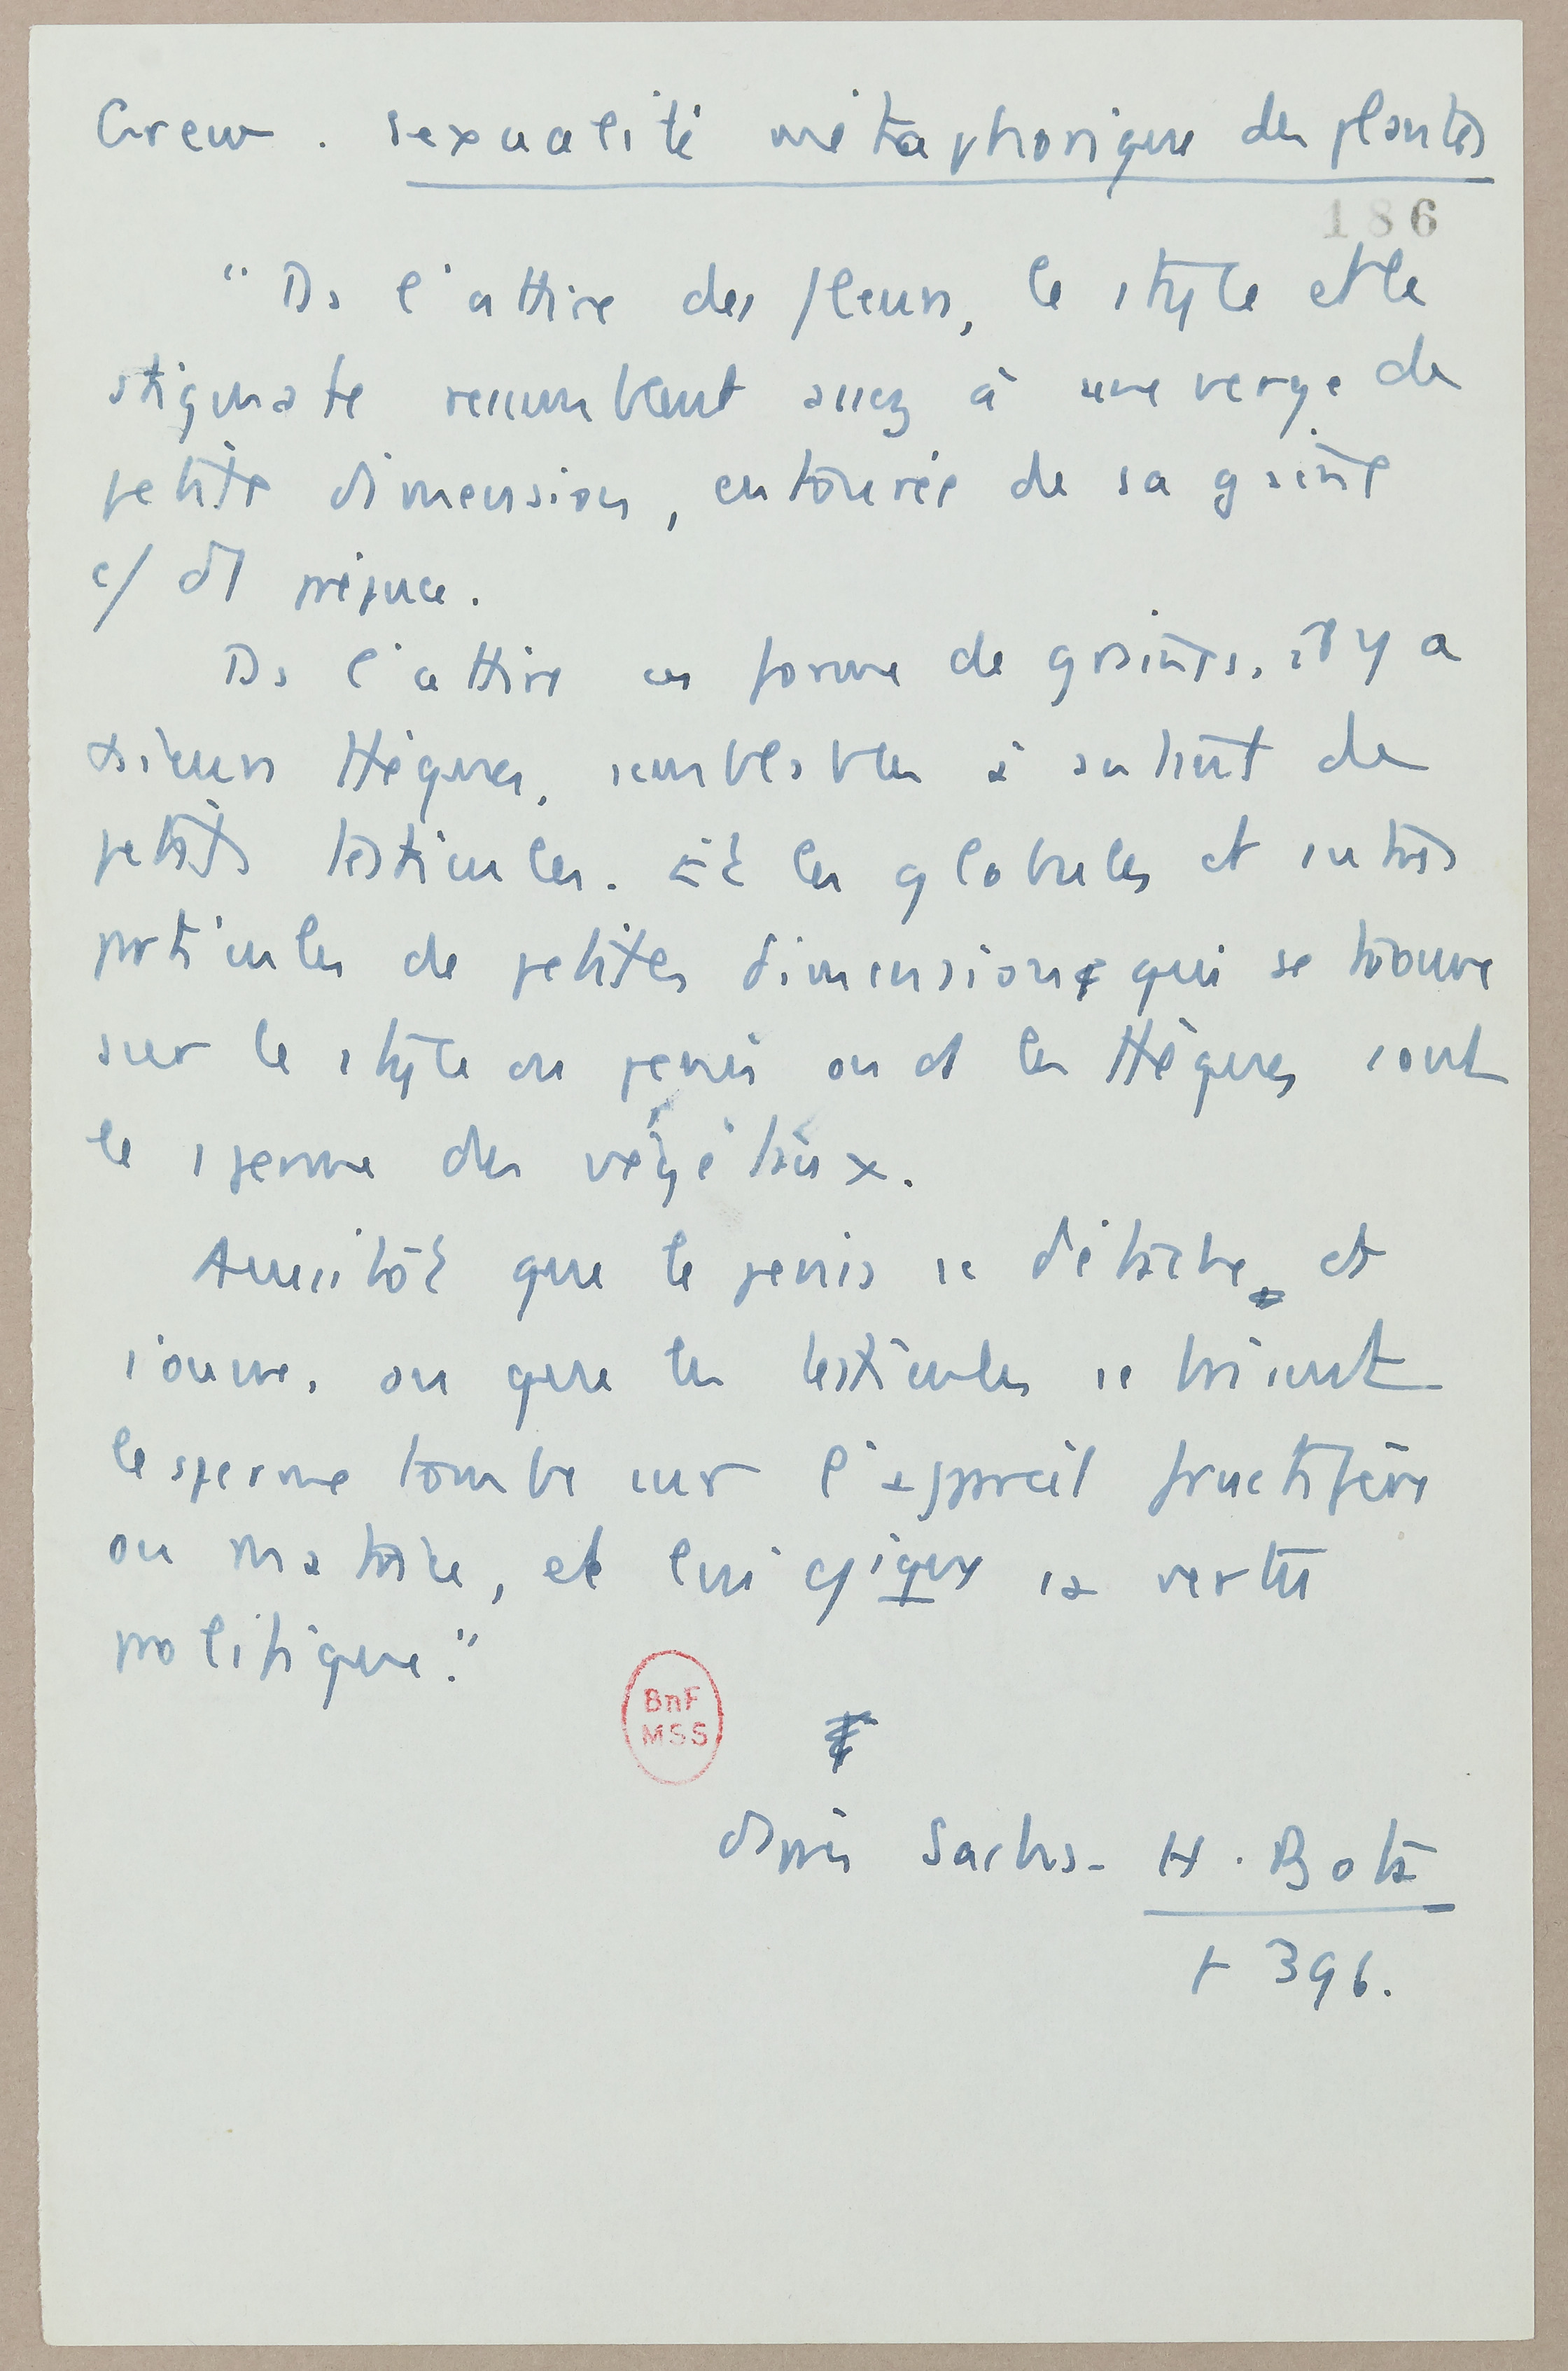 Grew. sexualité métaphorique des plantes
186
"Ds l'attire des fleurs, le style et le
stigmate ressemblent assez à une verge de
petite dimension, entourée de sa gaine
c/ d'1 prépuce.
Ds l'attire en forme de graines, il y a
thèques, semblables à autant de
petits testicules. Et les globules et autres
particules de petites dimensions qui se trouve
sur le style ou penis ou ds les thèques sont
le sperme des végétaux.
Aussitôt que le penis se détache et
s'ouvre, ou que les testicules se brisent
le sperme tombe sur l'appareil fructifère
ou matrice, et lui sa vertu
prolifique."
BnF
MSS
d'après Sachs. H. Bota
p 396.